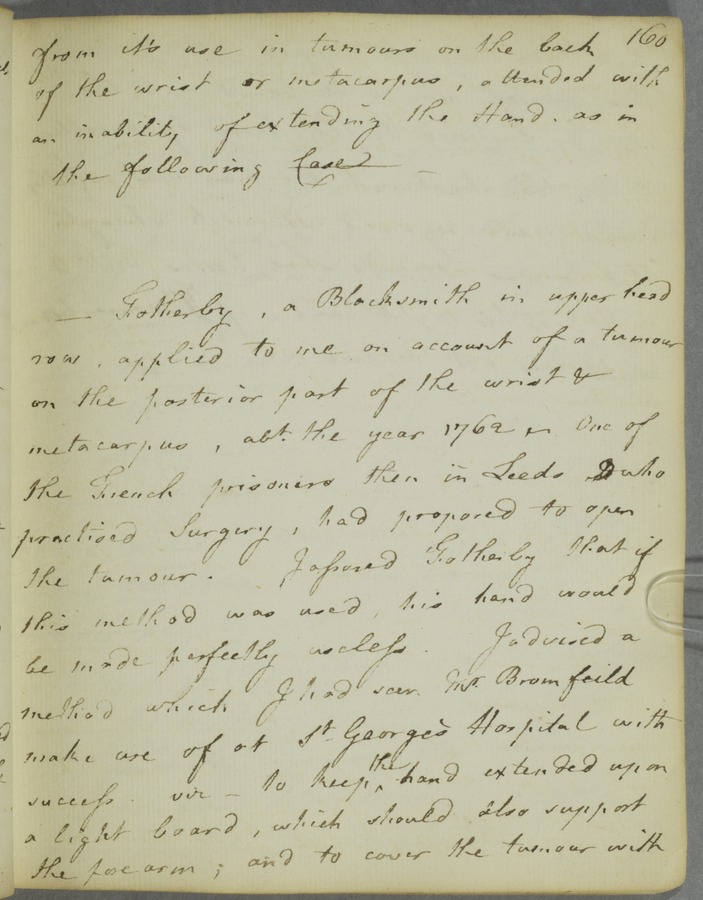 160
from it's use in tumours on the back
of the wrist or metacarpus, attended with
an inability of extending the Hand. as in
the following Case
— Fotherby, a Blacksmith in upper head
row, applied to me on account of a tumour
on the posterior part of the wrist &
metacarpus, abt. the year 1762 One of
the French prisoners then in Leeds who
practised Surgery, had proposed to open
the tumour. I assured Fotherby that if
this method was used, his hand would
be made perfectly useless. I advised a
method which I had seen Mr. Bromfeild
make use of at St. George's Hospital with
success. viz — to keep the hand extended upon
a light board, which should also support
the fore arm; and to cover the tumour with